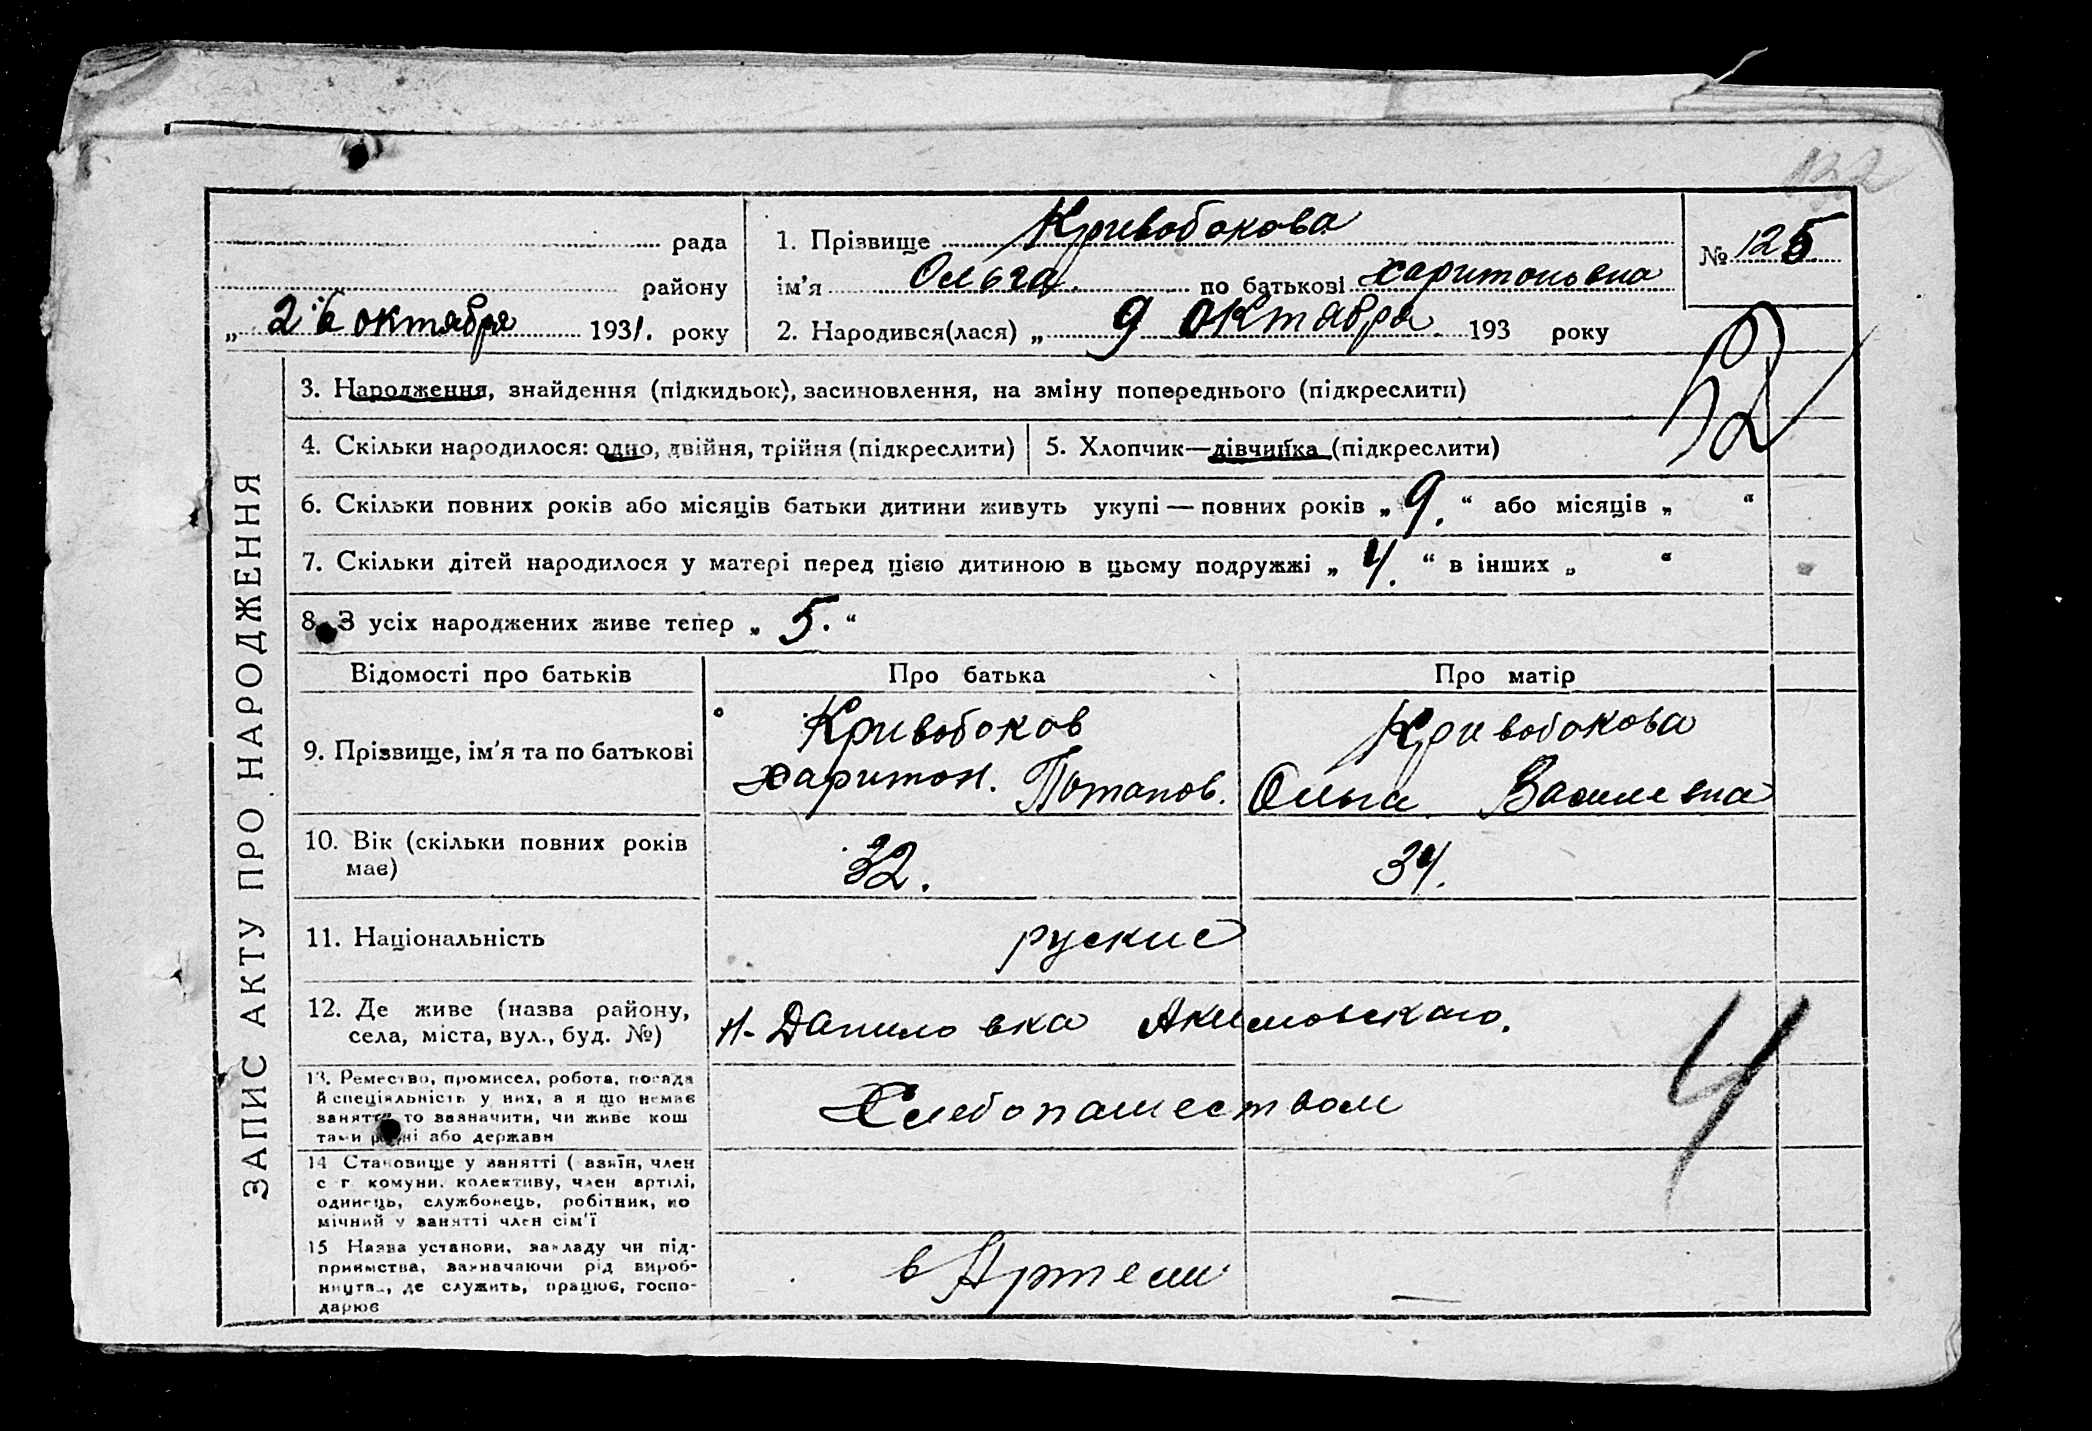 132
рада
району
„ 26 октября 1931. року
1. Прізвище Кривобокова
ім'я Ольга. по батькові Харитоновна
2. Народився(лася) „ 9 октября 193 року
№ 125
52
ЗАПИС АКТУ ПРО НАРОДЖЕННЯ
3. Народження, знайдення (підкидьок), засиновлення, на зміну попереднього (підкреслити)
4. Скільки народилося: одно, двійня, трійня (підкреслити)
5. Хлопчик—дівчинка (підкреслити)
6. Скільки повних років або місяців батьки дитини живуть укупі — повних років „ 9. “ або місяців „ “
7. Скільки дітей народилося у матері перед цією дитиною в цьому подружжі „ 4. “ в інших „ “
8. З усіх народжених живе тепер „ 5. “
Відомості про батьків
Про батька
Про матір
9. Прізвище, ім'я та по батькові
Кривобоков
Харитон. Потапов.
Кривобокова
Ольга Василевна
10. Вік (скільки повних років
має)
32.
34.
11. Національність
руские
12. Де живе (назва району,
села, міста, вул., буд. №)
Н-Даниловка Акимовскаго.
13. Ремество, промисел, робота, посада
й спеціяльність у них, а я що немає
заняття то зазначити, чи живе кош
тами рідні або держави
Хлебопашеством
4
14 Становище у занятті ( азяїн, член
с г. комуни, колективу, член артілі,
одинець, службовець, робітник, по
мічний у занятті член сім'ї
15 Назва установи, закладу чи під-
приємства, зазначаючи рід вироб-
ництва, де служить, працює, госпо-
дарює
в Артели
—